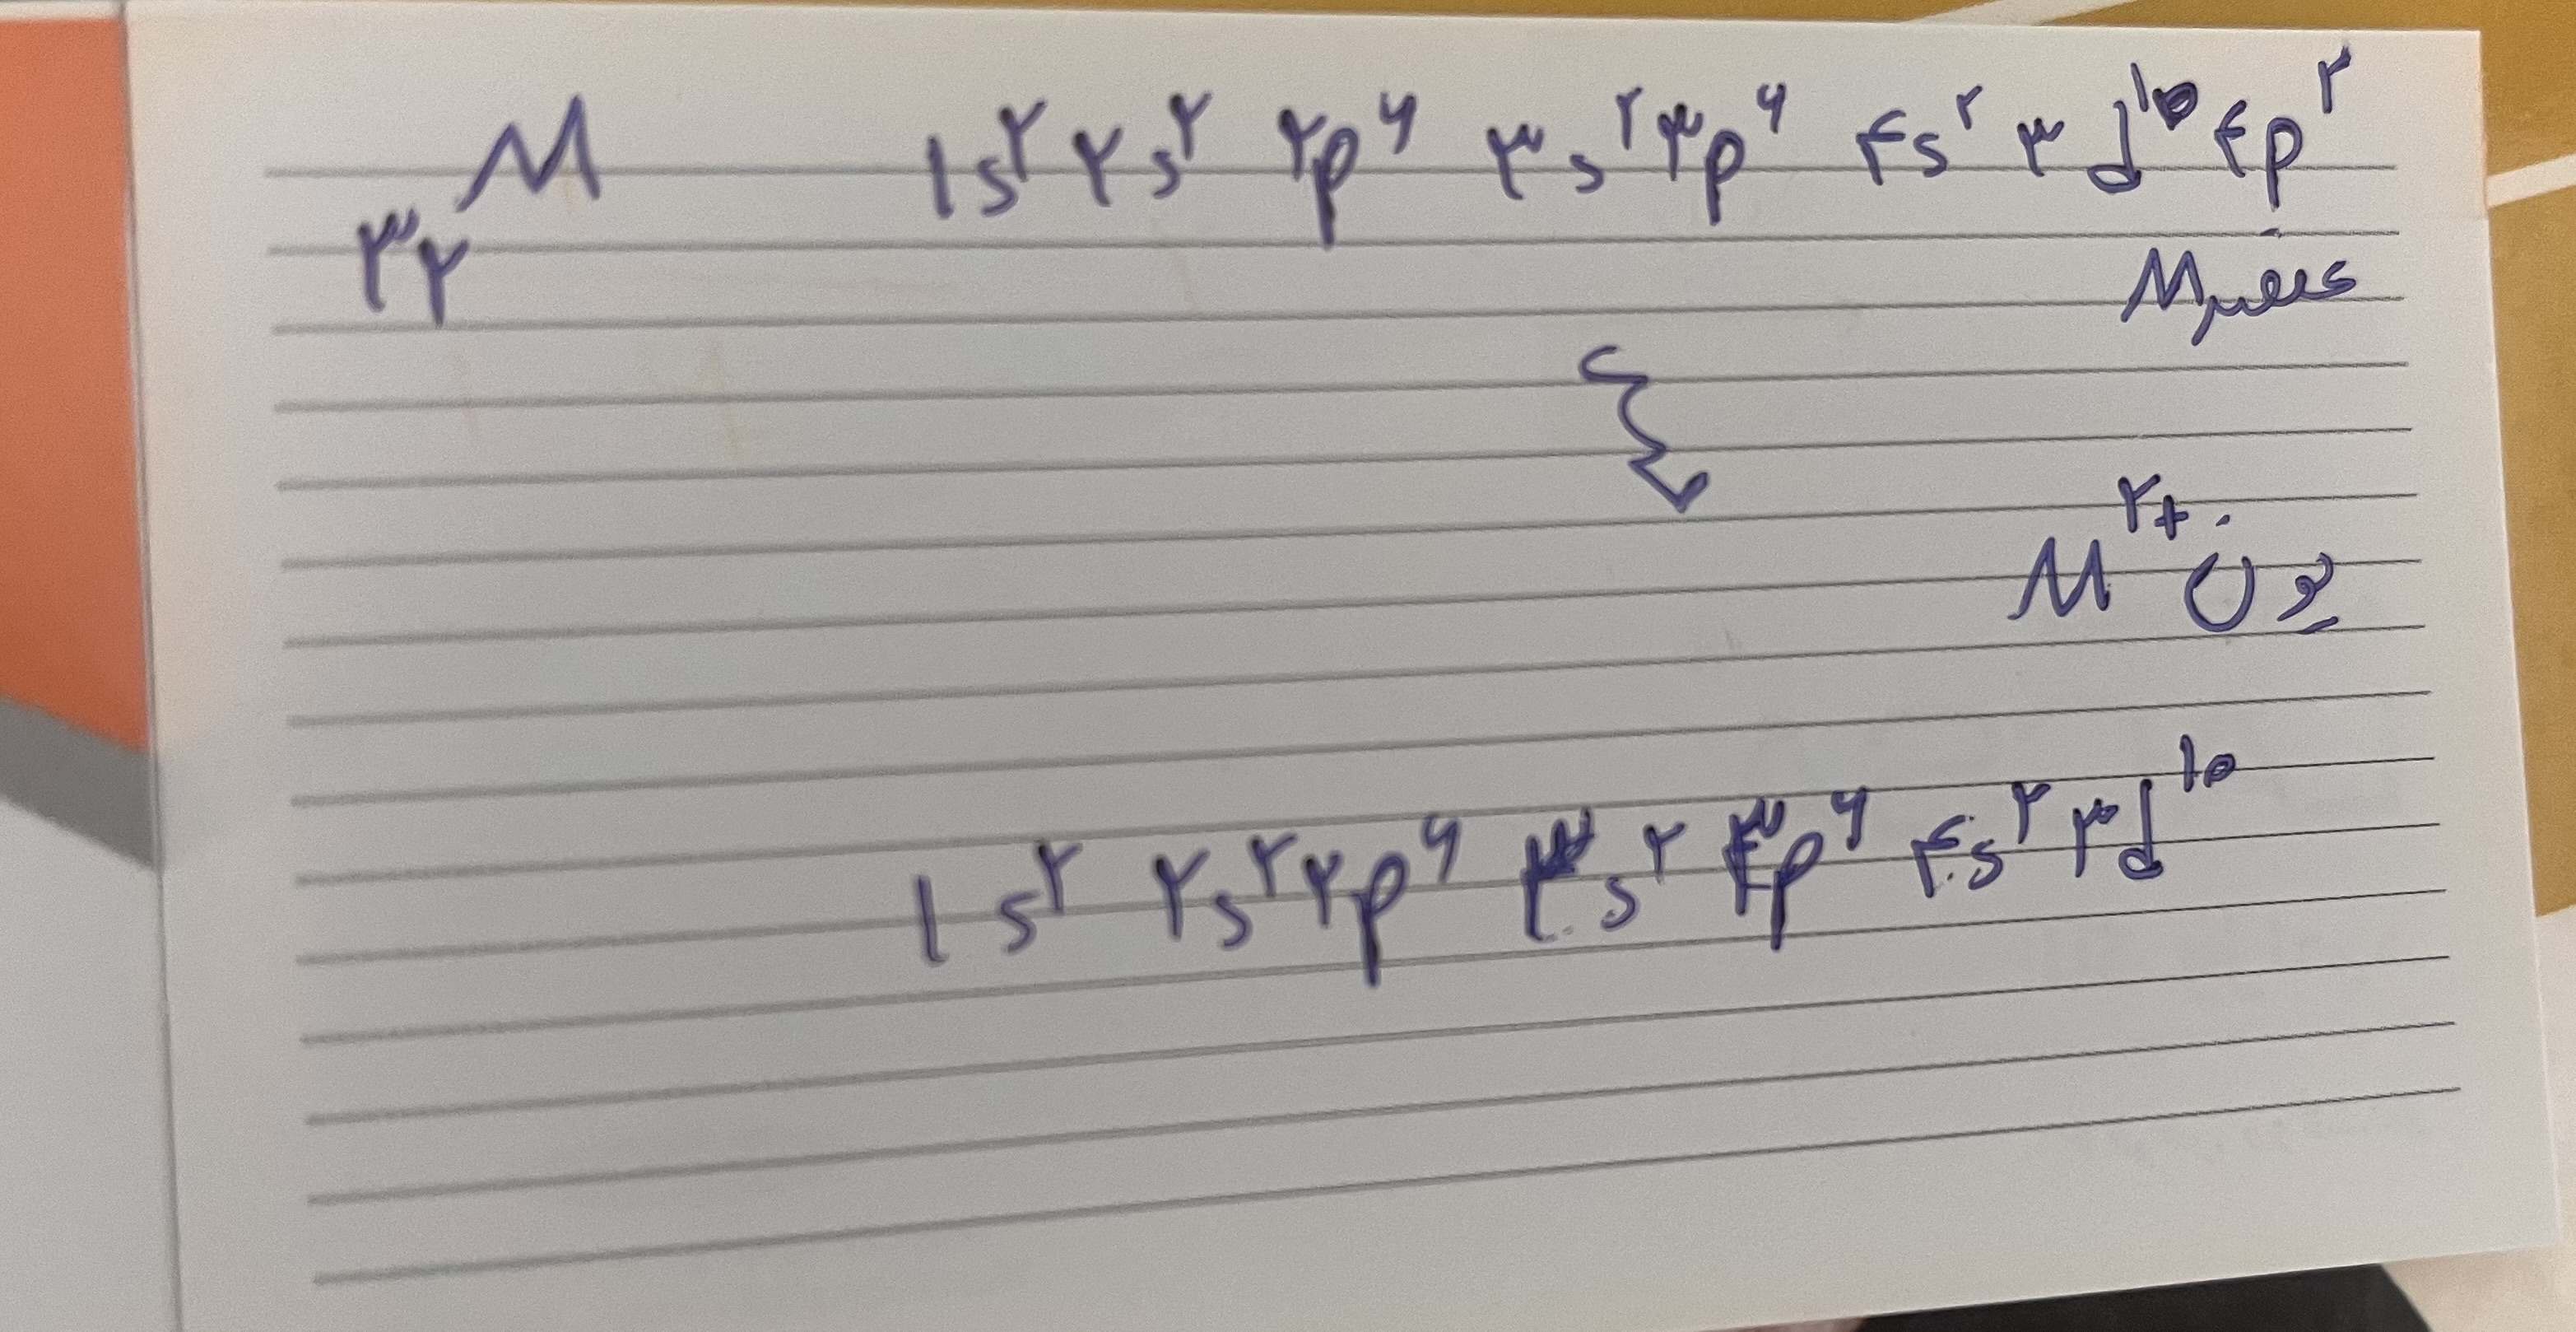 ۳۲M ۱s۲ ۲s۲ ۲p۶ ۳s۲ ۳p۶ ۴s۲ ۳d۱۰ ۴p۲
عنصر M
یون M۲+
۱s۲ ۲s۲ ۲p۶ ۳s۲ ۳p۶ ۴s۲ ۳d۱۰